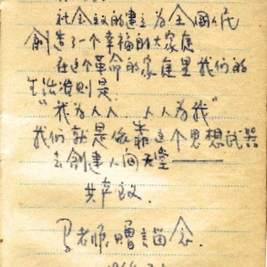 社会主义的建立为全国人民
创造了一个幸福的大家庭
在这个革命的家庭里我们的
生活准则是:
"我为人人、人人为我"
我们就是依靠这个思想武器
去创建人间天堂——
共产主义.
马老师赠言留念.